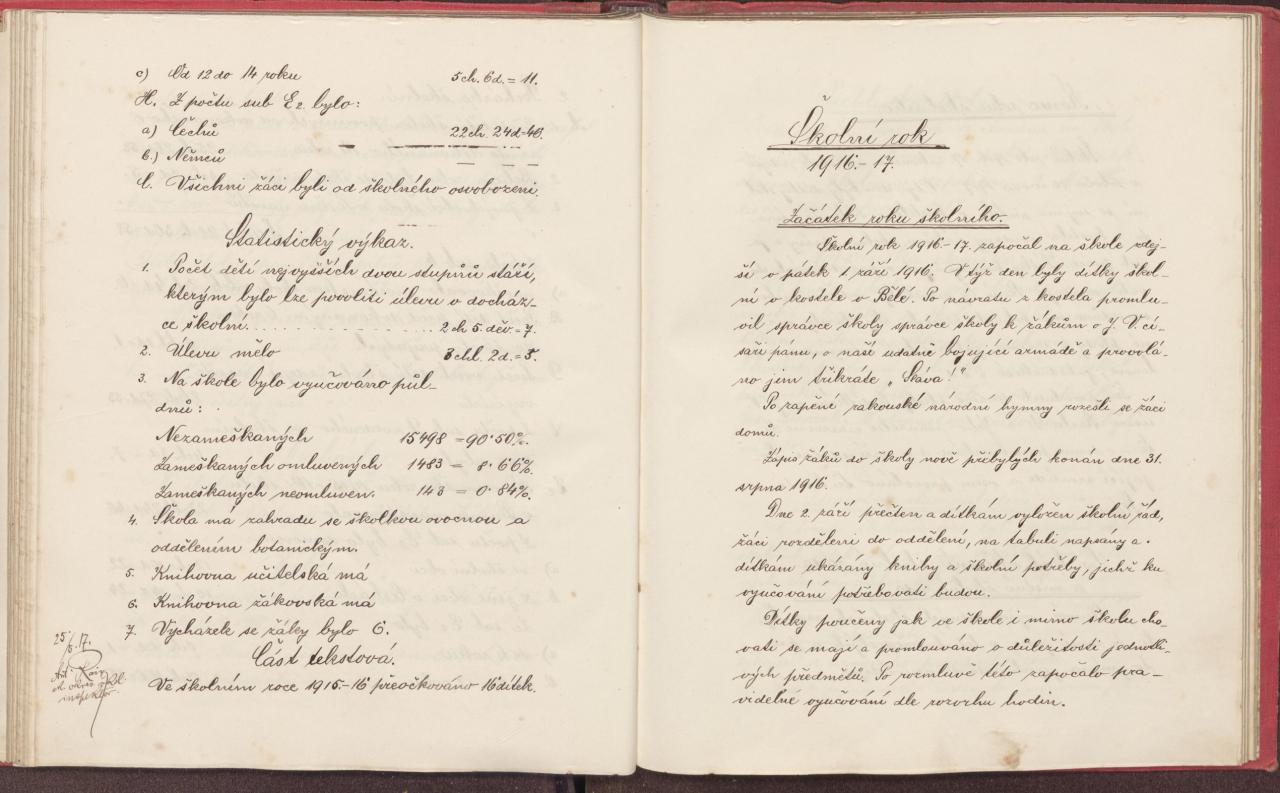 c) Od 12 do 14 roku 5 ch. 6 d. = 11.
H. Z počtu sub E2. bylo:
a) Čechů 22 ch. 24 d = 46.
b.) Němců — — —
Všichni žáci byli od školného osvobozeni.
Statistický výkaz.
1. Počet dětí nejvyšších dvou stupňů stáří,
kterým bylo lze povoliti úlevu v docház-
ce školní. . . . . . . . . . . . . . 2 ch 5. děv. = 7.
2. Úlevu mělo 3 chl. 2 d. = 5.
3. Na škole bylo vyučováno půl-
dnů:
Nezameškaných 15498 = 90·50%.
Zameškaných omluvených 1483 = 8·66%.
Zameškaných neomluven. 143 = 0·84%.
4. Škola má zahradu se školkou ovocnou a
oddělením botanickým.
5. Knihovna učitelská má
6. Knihovna žákovská má
7. Vycházek se žáky bylo 6.
Část tekstová.
Ve školním roce 1915-16 přeočkováno 16 dítek.
25/6. 17.
Ant.
inspektor
Školní rok
1916.-17.
Začátek roku školního.
Školní rok 1916.-17. započal na škole zdej-
ší v pátek 1 září 1916. V týž den byly dítky škol-
ní v kostele v Bělé. Po návratu z kostela promlu-
vil správce školy správce školy k žákům o J. V. cí-
saři pánu, o naší udatně bojující armádě a provolá-
no jim třikráte „Sláva!"
Po zapění rakouské národní hymny rozešli se žáci
domů.
Zápis žáků do školy nově přibylých konán dne 31.
srpna 1916.
Dne 2. září přečten a dítkám vyložen školní řád,
žáci rozděleni do oddělení, na tabuli napsány a
dítkám ukázány knihy a školní potřeby, jichž ku
vyučování potřebovati budou.
Dítky poučeny jak ve škole i mimo školu cho-
vati se mají a promlouváno o důležitosti jednotli-
vých předmětů. Po rozmluvě této započalo pra-
videlné vyučování dle rozvrhu hodin.